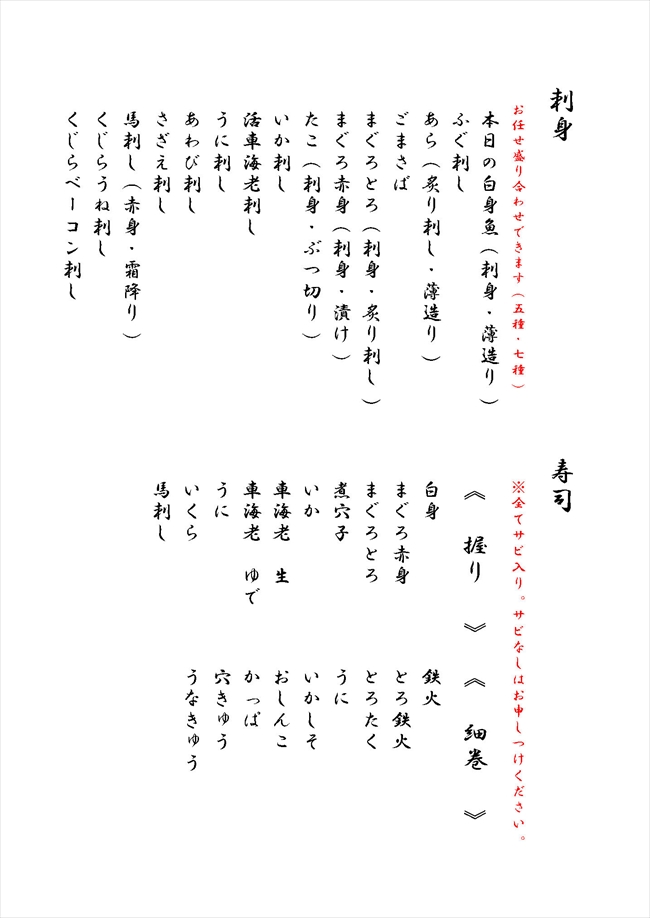 刺身
お任せ盛り合わせできます(五種・七種)
本日の白身魚(刺身・薄造り)
ふぐ刺し
あら(炙り刺し・薄造り)
ごまさば
まぐろとろ(刺身・炙り刺し)
まぐろ赤身(刺身・漬け)
たこ(刺身・ぶつ切り)
いか刺し
活車海老刺し
うに刺し
あわび刺し
さざえ刺し
馬刺し(赤身・霜降り)
くじらうね刺し
くじらベーコン刺し
寿司
※全てサビ入り。サビなしはお申しつけください。
《 握り 》
白身
まぐろ赤身
まぐろとろ
煮穴子
いか
車海老 生
車海老 ゆで
うに
いくら
馬刺し
《 細巻 》
鉄火
とろ鉄火
とろたく
うに
いかしそ
おしんこ
かっぱ
穴きゅう
うなきゅう